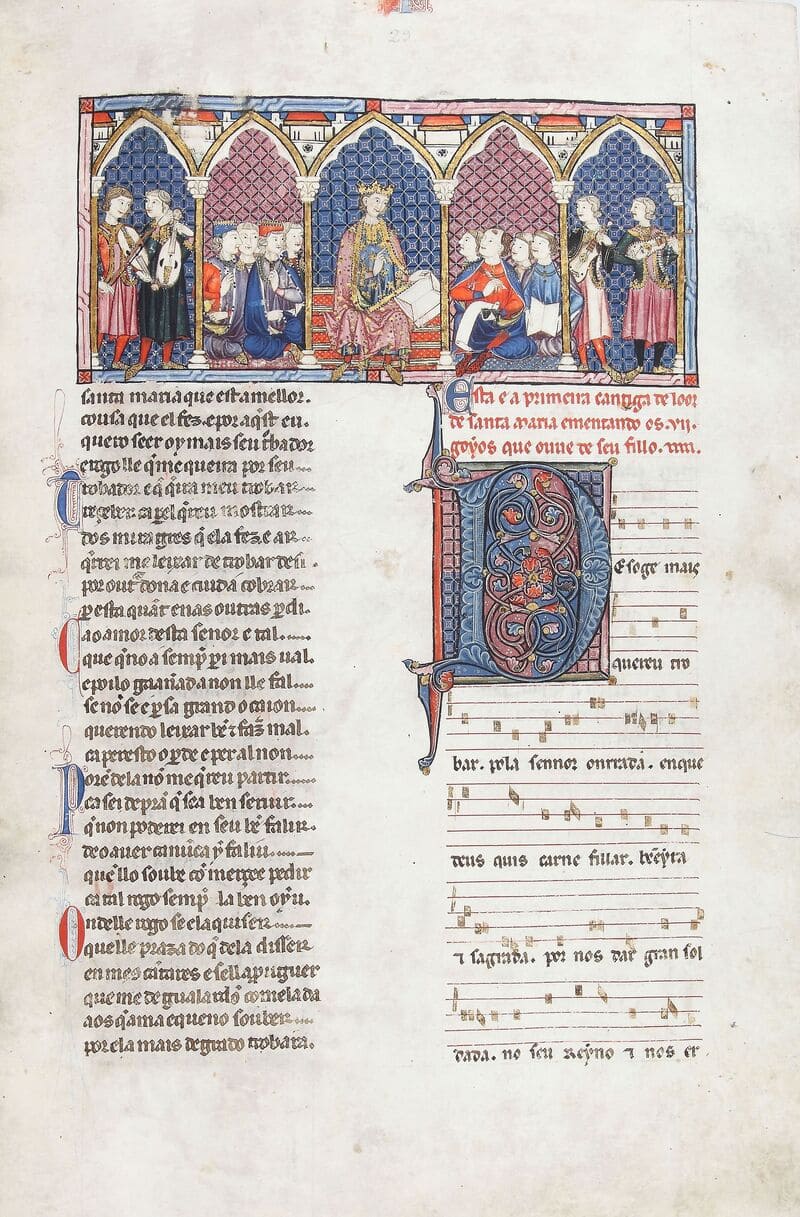 29
santa maria que est a mellor.
cousa que el fez. e por aq̄st eu.
quero seer oy mais seu t̄bador
e rogo lle q̄ me queira por seu
trobador e q̄ q̄ira meu trobar
reçeber. ca per el q̄reu mostrar
dos miragres q̄ ela fez. e ar
q̄rrei me leixar de trobar des i.
por out̄ dona e cuida cobrar
ꝑ esta quāt enas outras ꝑdi.
Ca o amor desta señor e tal.
que q̄no a semp̄ ꝑ i mais ual.
e poilo gaañada non lle fal
se nō se e ꝑ sa grand ocaion.
querendo leixar bē ⁊ faz̄ mal.
ca per esto o ꝑde e per al non.
Porē dela nō me q̄reu partir.
ca sei de prā q̄ sea ben seruir.
q̄ non poderei en seu bē falir.
de o auer ca nūca y faliu.
quē llo soube cō merçee pedir
ca tal rogo semp̄ la ben oyu.
Ondelle rogo se ela quiser
quelle praza do q̄ dela disser
en meus cātares e sell ap̄uguer
que me de gualardō comela da
aos q̄ ama e queno souber.
por ela mais de grado trobara.
Esta e a primeira cantiga de loor
de santa maria ementando os .vii.
goyos que ouue de seu fillo.
Desoge mais
quereu tro
bar. pola sennor onrrada. enque
deus quis carne fillar. bēeyta
⁊ sagrada. por nos dar gran sol
dada. no seu reyno ⁊ nos er